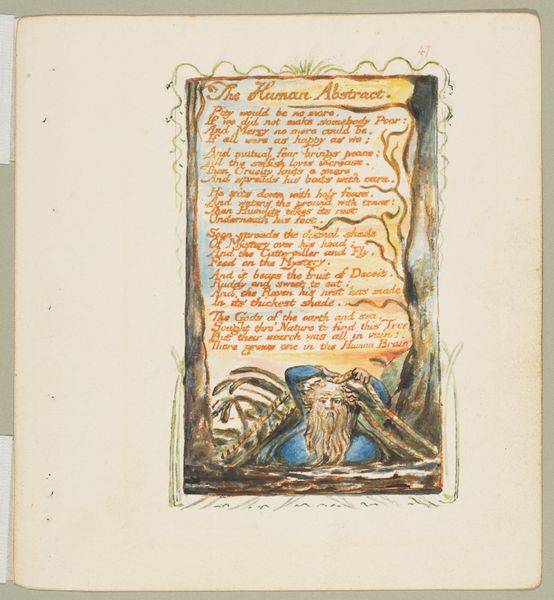 47
The Human Abstract.
Pity would be no more,
If we did not make somebody Poor:
And Mercy no more could be,
If all were as happy as we;
And mutual fear brings peace:
Till the selfish loves increase.
Then Cruelty knits a snare,
And spreads his baits with care.
He sits down with holy fears,
And waters the ground with tears:
Then Humility takes its root
Underneath his foot.
Soon spreads the dismal shade
Of Mystery over his head;
And the Catterpiller and Fly
Feed on the Mystery.
And it bears the fruit of Deceit,
Ruddy and sweet to eat;
And the Raven his nest has made
In its thickest shade.
The Gods of the earth and sea,
Sought thro' Nature to find this Tree
But their search was all in vain:
There grows one in the Human Brain